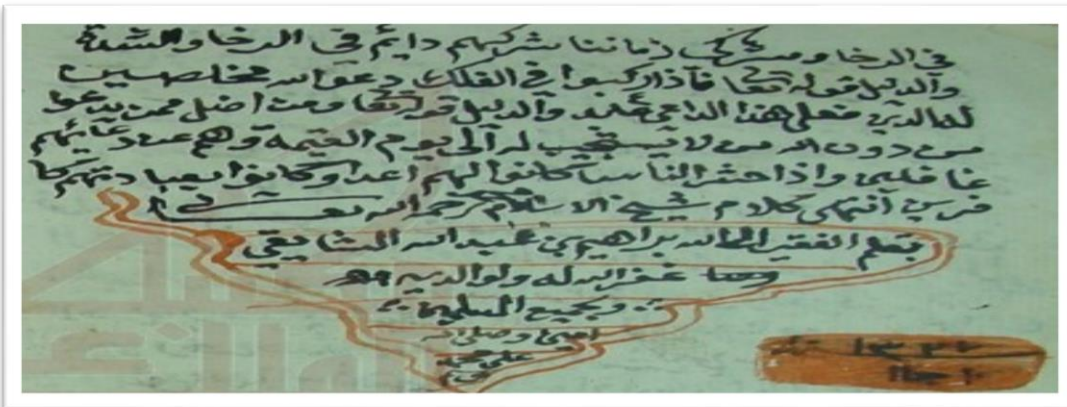 في الرخا ومشركي زماننا شركهم دايم في الرخا والشدة
والدليل قوله تعا فاذا ركبوا في الفلك دعوا الله مخلصين
له الدين فعلى هذا الداعي عابد والدليل قوله تعا ومن اضل ممن يدعو
من دون الله من لا يستجيب له الى يوم القيمة وهم عن دعائهم
غافلين واذا حشر الناس كانوا لهم اعدا وكانوا بعبادتهم كا
فرين انتهى كلام شيخ الاسلام رحمه الله تعالى
بقلم الفقير الى الله براهيم بن عبدالله المشايقي
غفر الله له ولوالديه
ولجميع المسلمين
امين وصلى الله
على محمد